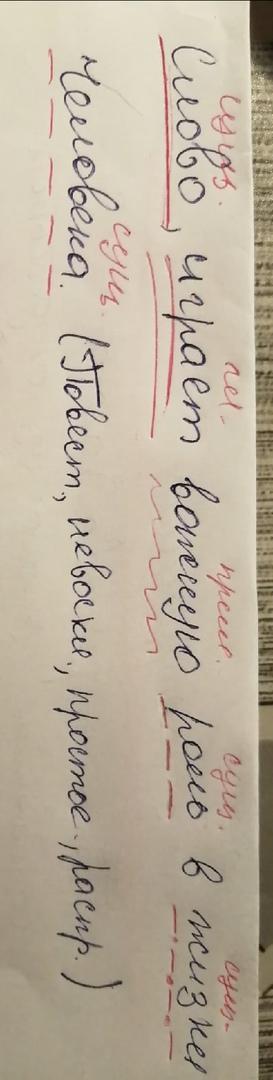 сущ. гл. прил. сущ. сущ.
Слово, играет важную роль в жизни
сущ.
Человека. (Повест, невоскл, простое, распр.)